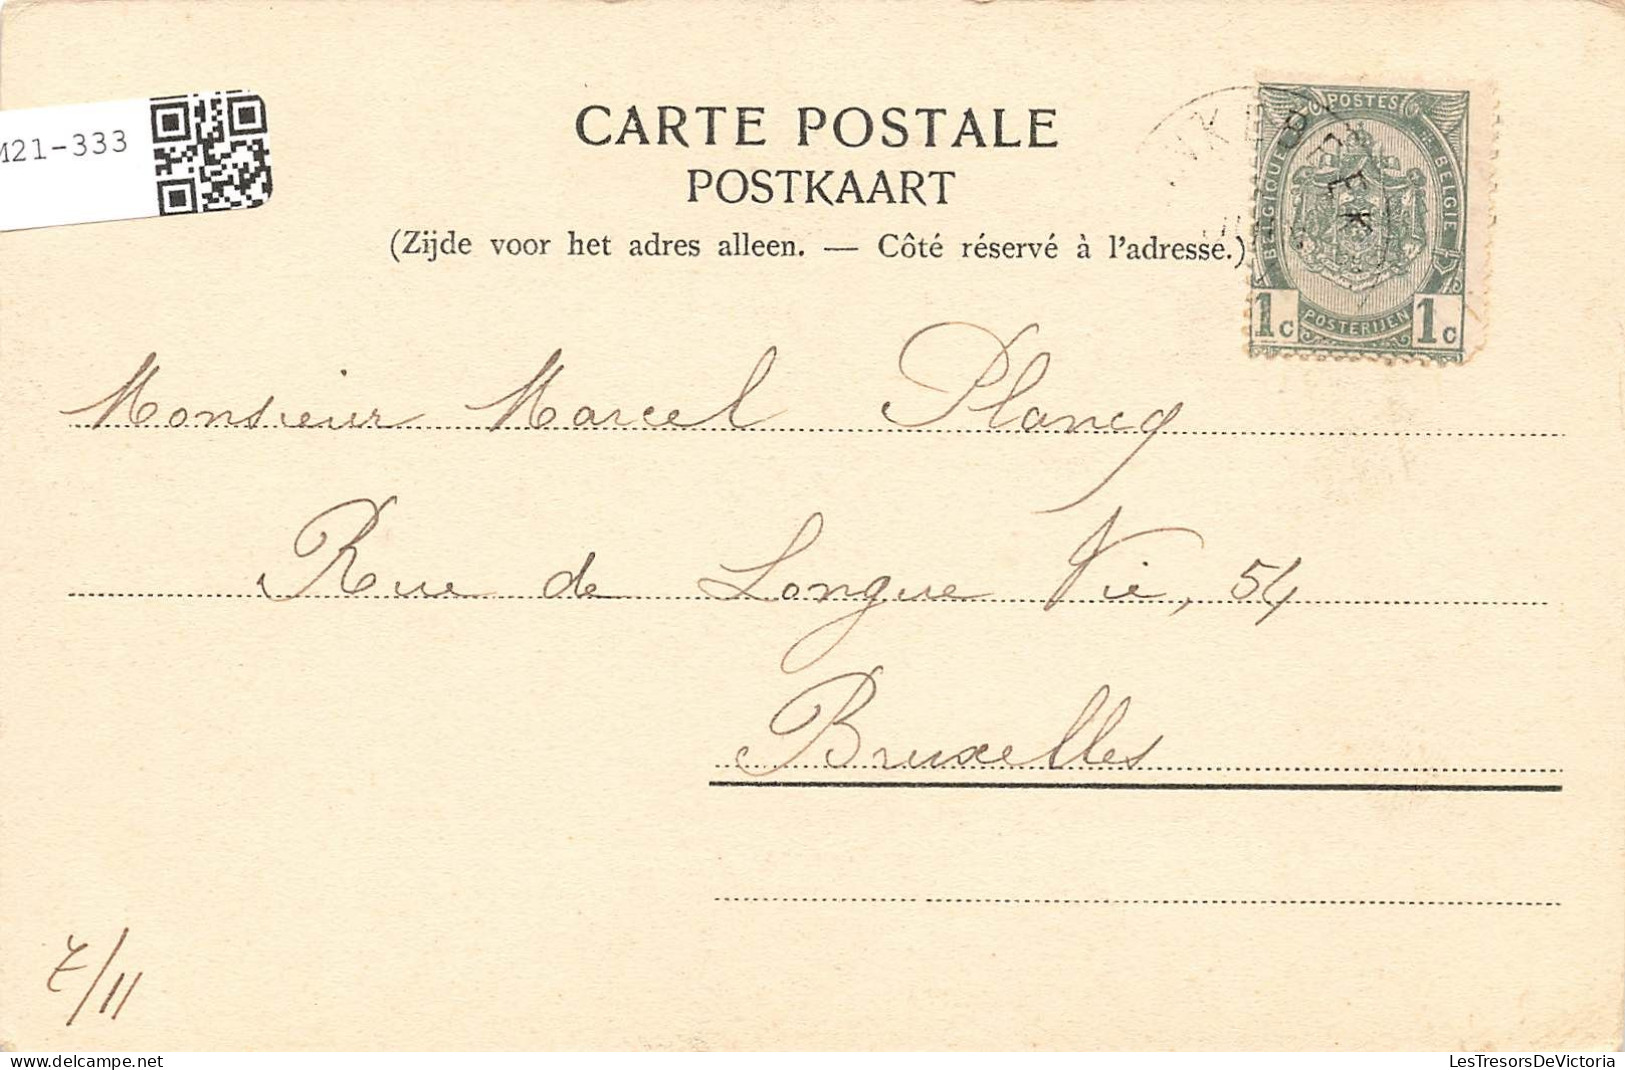 M21-333
CARTE POSTALE
POSTKAART
(Zijde voor het adres alleen. — Côté réservé à l'adresse.)
POSTES
BELGIQUE
BELGIE
1c POSTERIJEN 1c
Monsieur Marcel Plancq
Rue de Longue Vie, 54
Bruxelles
7/11
www.delcampe.net
LesTresorsDeVictoria